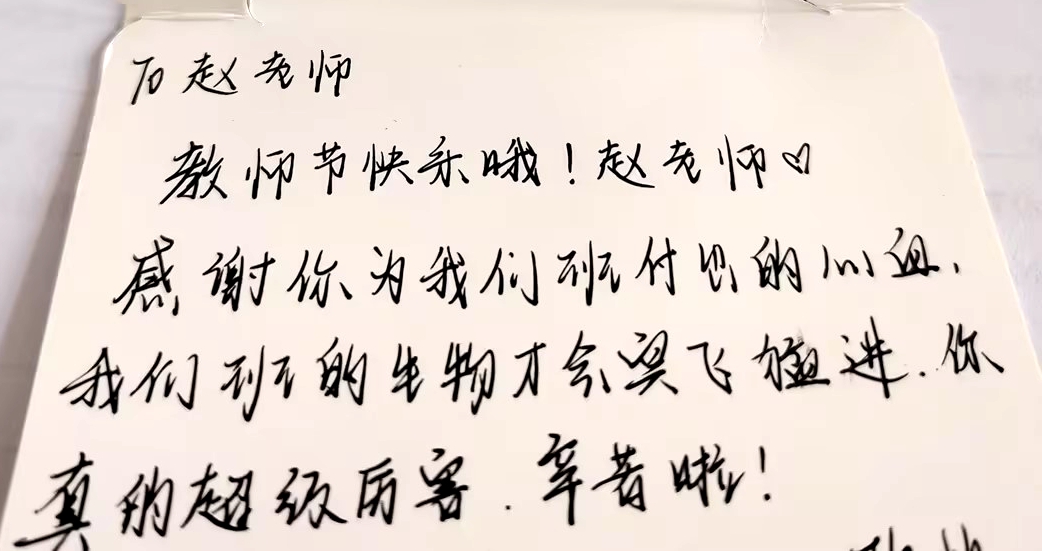 To 赵老师
教师节快乐哦！赵老师♡
感谢你为我们班付出的心血，
我们班的生物才会突飞猛进．你
真的超级厉害．辛苦啦！